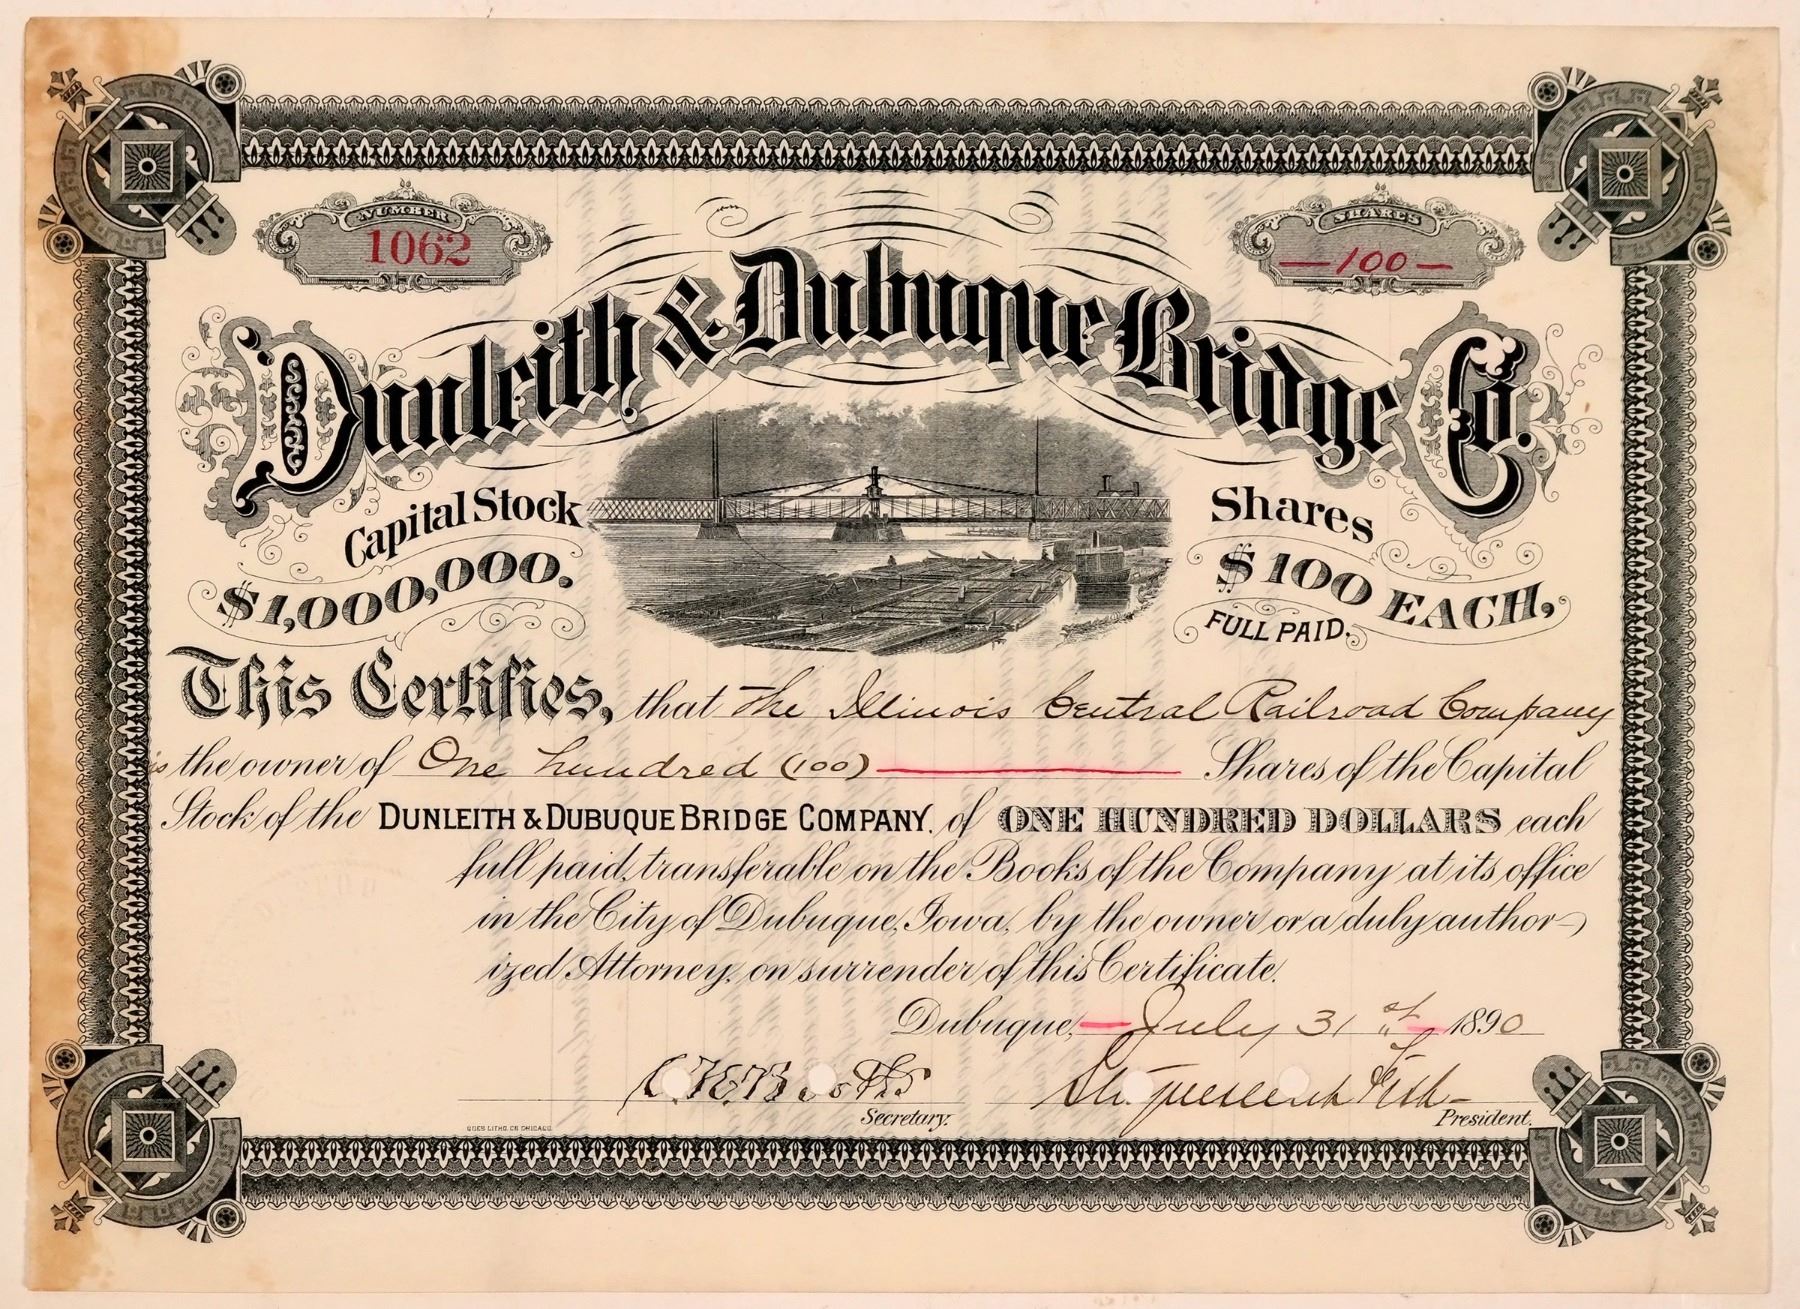 NUMBER
1062
SHARES
—100—
Dunleith & Dubuque Bridge Co.
Capital Stock
$1,000,000.
Shares
$100 EACH,
FULL PAID.
This Certifies, that The Illinois Central Railroad Company
is the owner of One hundred (100) Shares of the Capital
Stock of the DUNLEITH & DUBUQUE BRIDGE COMPANY, of ONE HUNDRED DOLLARS each
full paid, transferable on the Books of the Company at its office
in the City of Dubuque, Iowa, by the owner or a duly author-
ized Attorney, on surrender of this Certificate.
Dubuque, — July 31st — 1890
Stuyvesant Fish
Secretary.
President.
LITHO. CO CHICAGO.